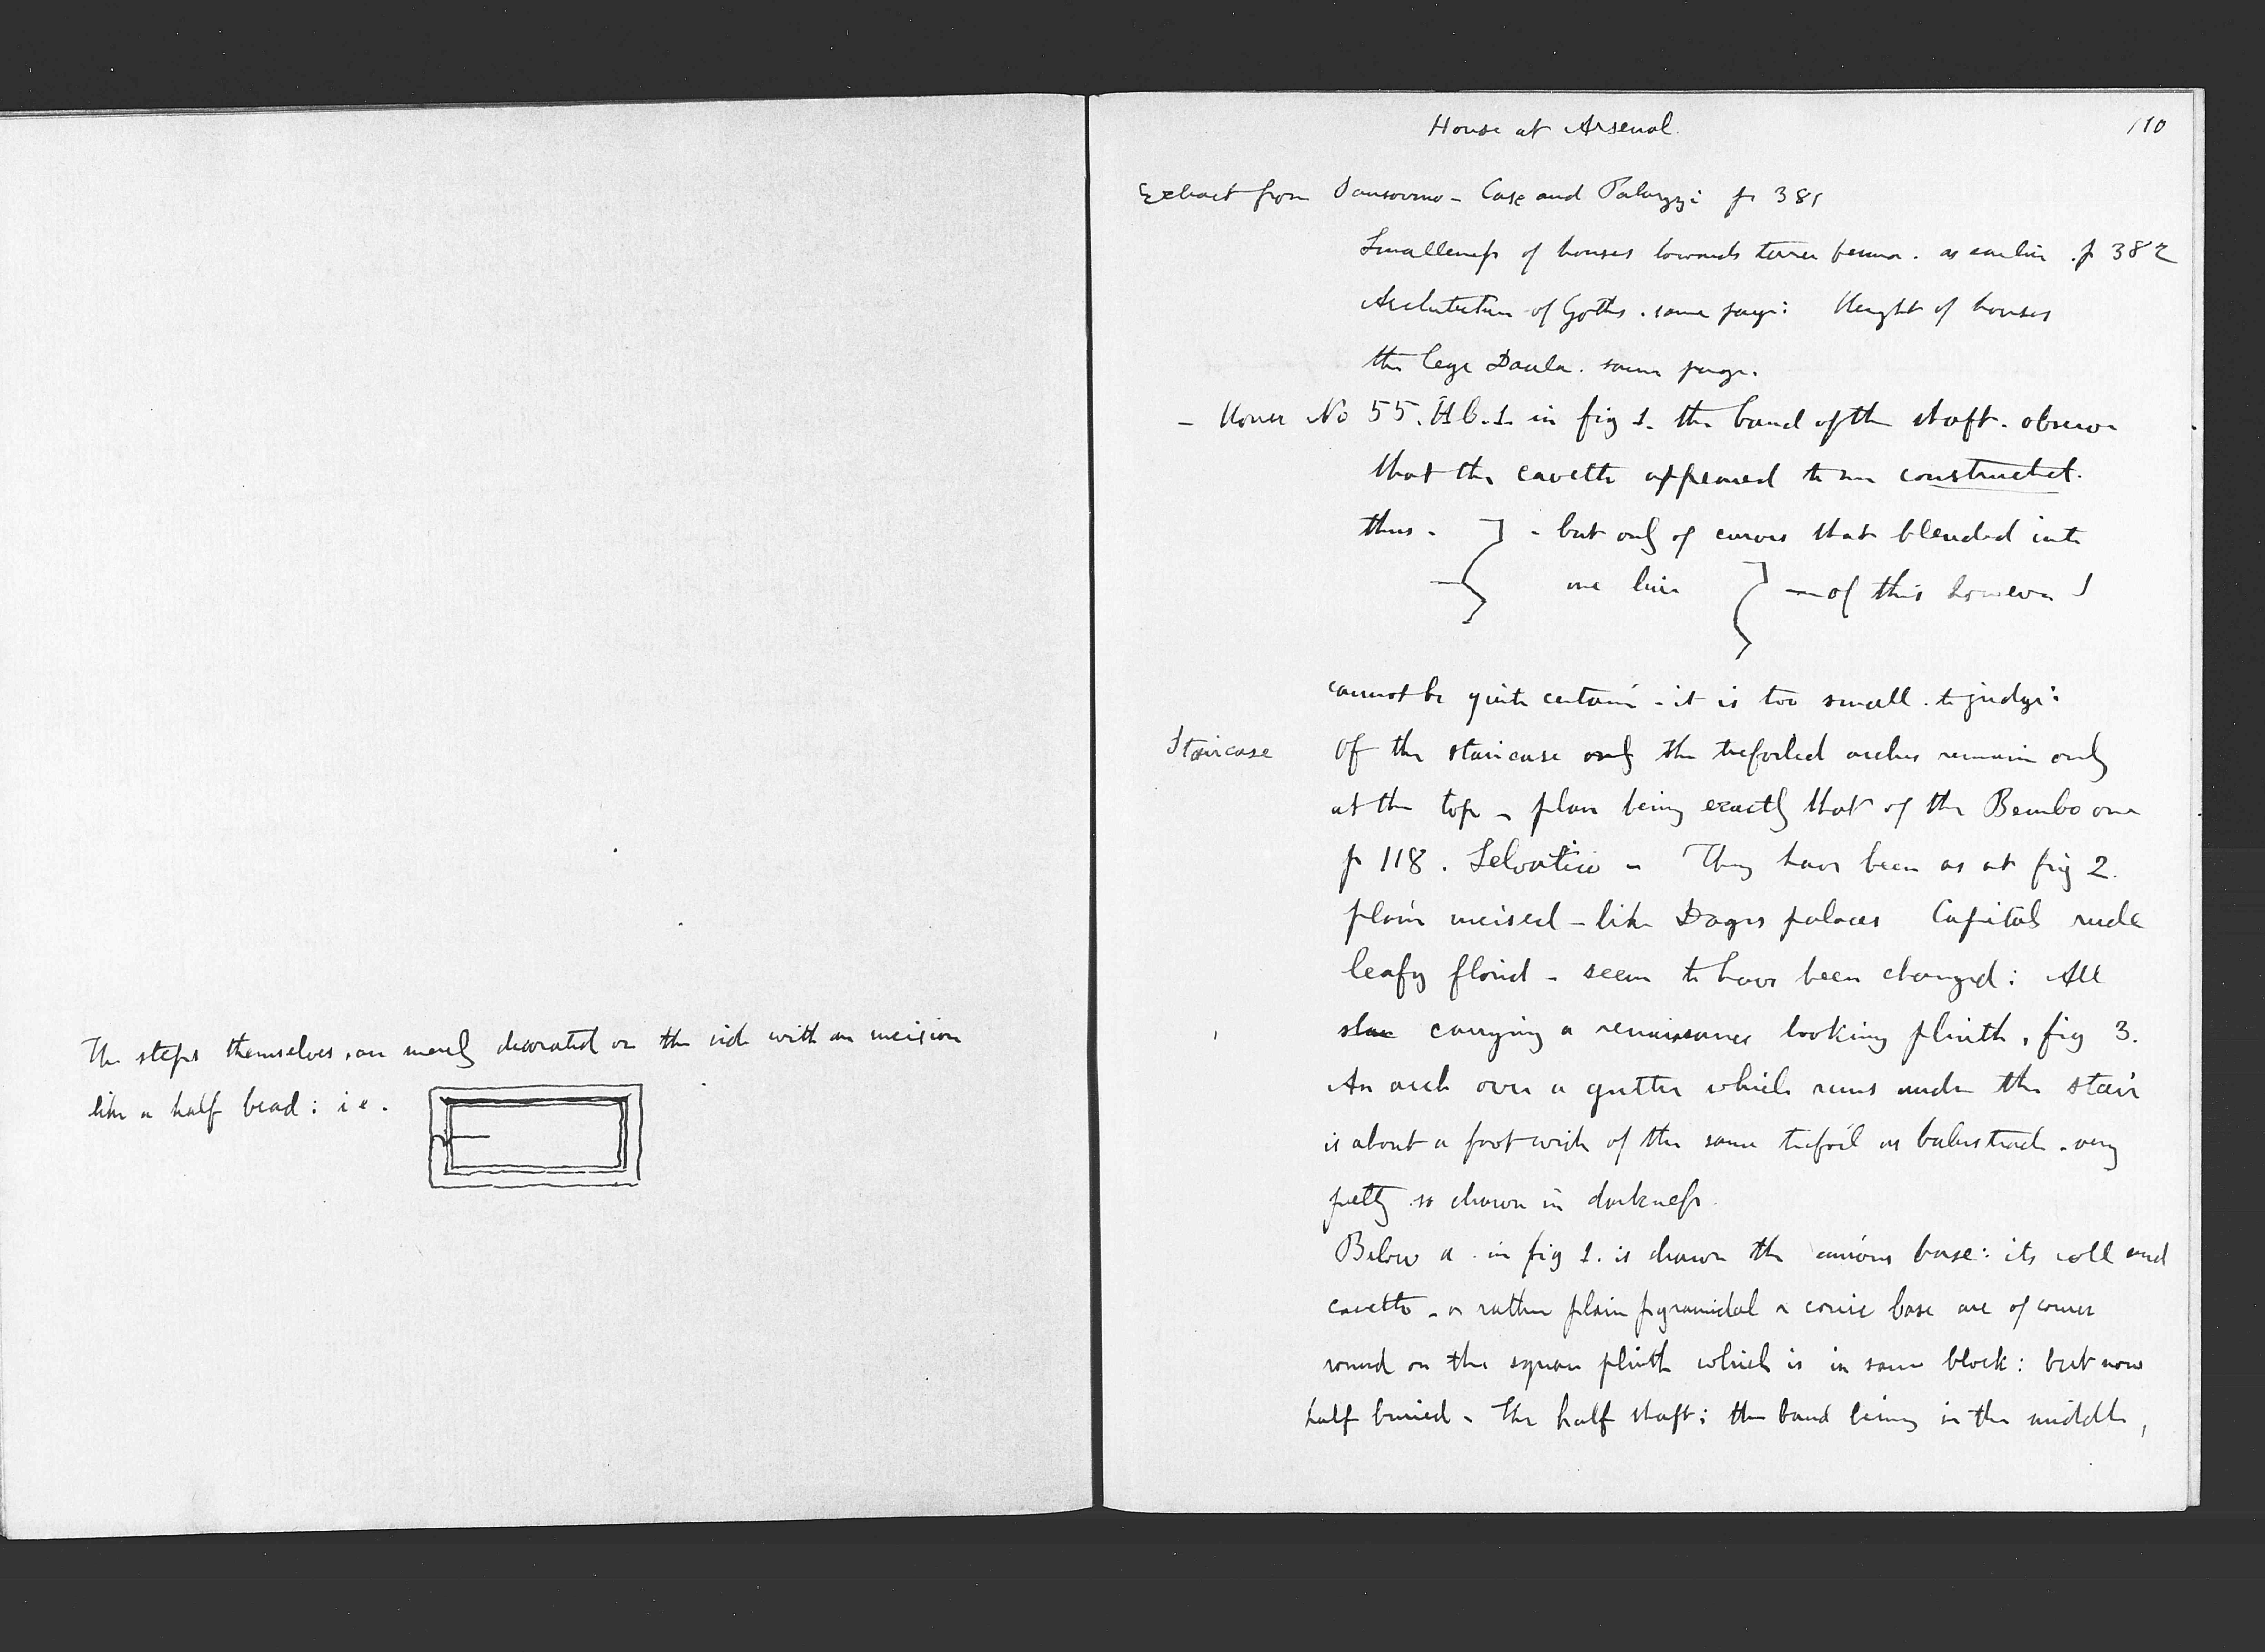 The steps themselves, are merely decorated on the side with an incision
like a half bead: i e.
House at Arsenal
110
Extract from Sansovino - Case and Palazzi p 381
Smallness of houses towards terra ferma. as earlier. p 382
Architecture of Goths. same page: Height of houses
the lege Daula. same page.
- House No 55. H b. 1. in fig 1. the band of the shaft. observe
that the cavetto appeared to me constructed.
thus. - but only of curves that blended into
one line - of this however I
cannot be quite certain - it is too small. to judge:
Staircase
Of the staircase only the trefoiled arches remain only
at the top - plan being exactly that of the Bembo one
p 118. Selvatico - They have been as at fig 2.
plain incised - like Doges palaces Capitals rude
leafy florid - seem to have been changed: All
carrying a renaissance looking plinth, fig 3.
An arch over a gutter which runs under the stair
is about a foot wide of the same trefoil as balustrade. very
pretty so drawn in darkness.
Below a in fig 1. is drawn the curious base: its roll and
cavetto - or rather plain pyramidal or conic base are of course
round on the square plinth which is in same block: but now
half buried - The half shaft; the band being in the middle,